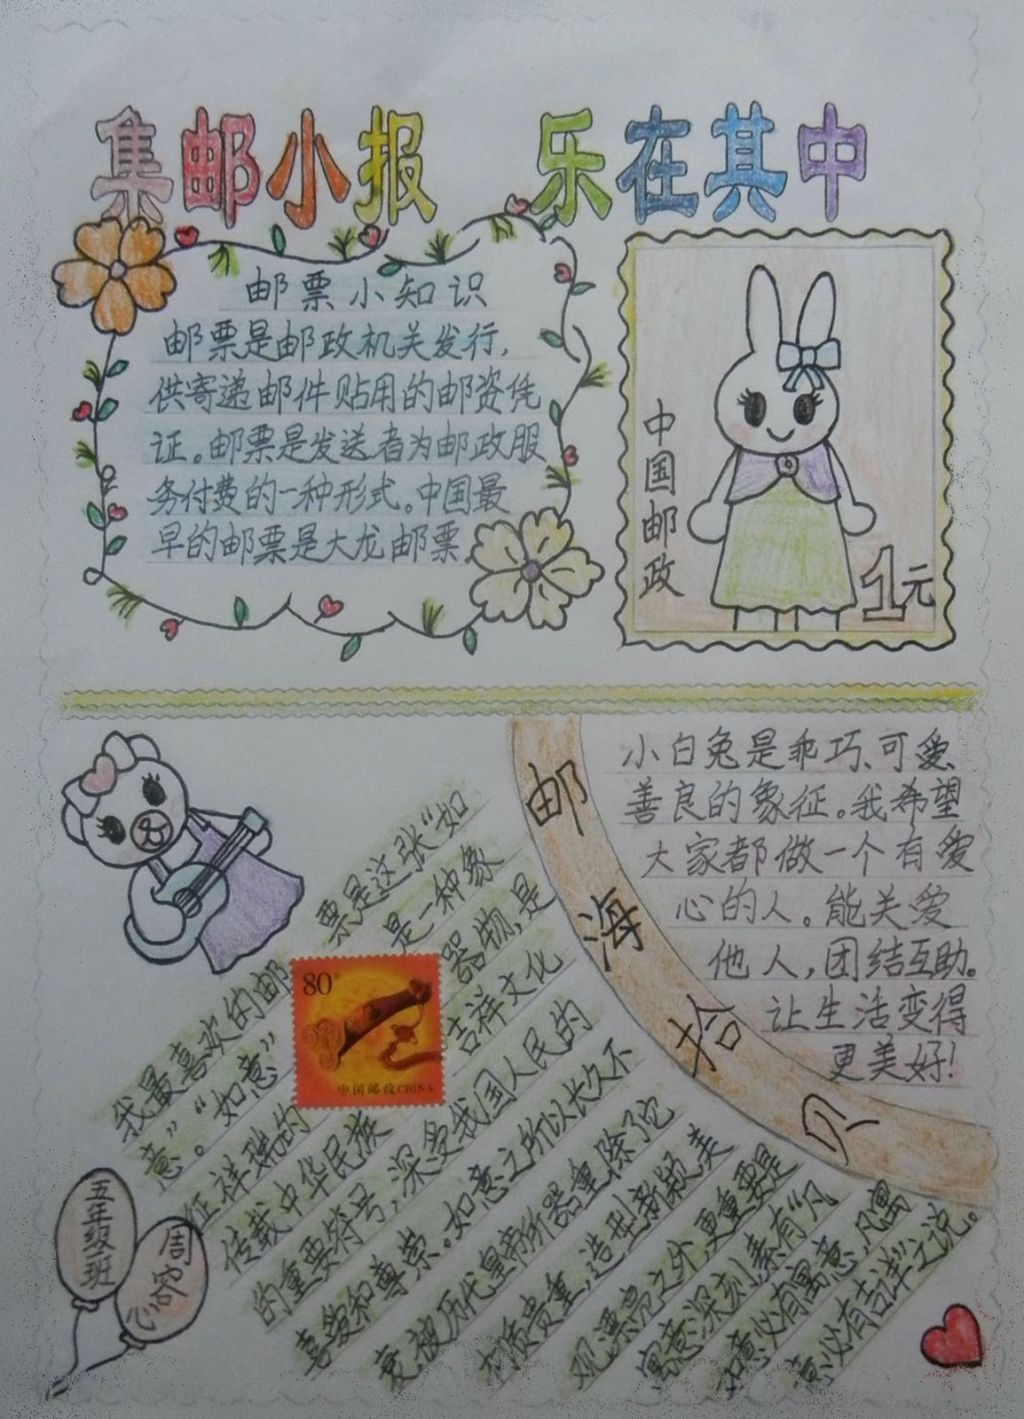 集邮小报 乐在其中
邮票小知识
邮票是邮政机关发行,
供寄递邮件贴用的邮资凭
证。邮票是发送者为邮政服
务付费的一种形式。中国最
早的邮票是大龙邮票。
中国邮政
1元
邮海拾贝
小白兔是乖巧、可爱、
善良的象征。我希望
大家都做一个有爱
心的人。能关爱
他人,团结互助。
让生活变得
更美好!
我最喜欢的邮票是这张“如
意”。“如意”是一种象
征祥瑞的器物,是
传载中华民族吉祥文化
的重要符号,深受我国人民的
喜爱和尊崇。如意之所以长久不
衰,被历代皇帝所器重,除了它
材质贵重,造型新颖,美
观漂亮之外,更重要是
寓意深刻,素有“凡
如意必有寓意,凡寓
意必有吉祥”之说。
80分
中国邮政CHINA
五年级
班
周容
心